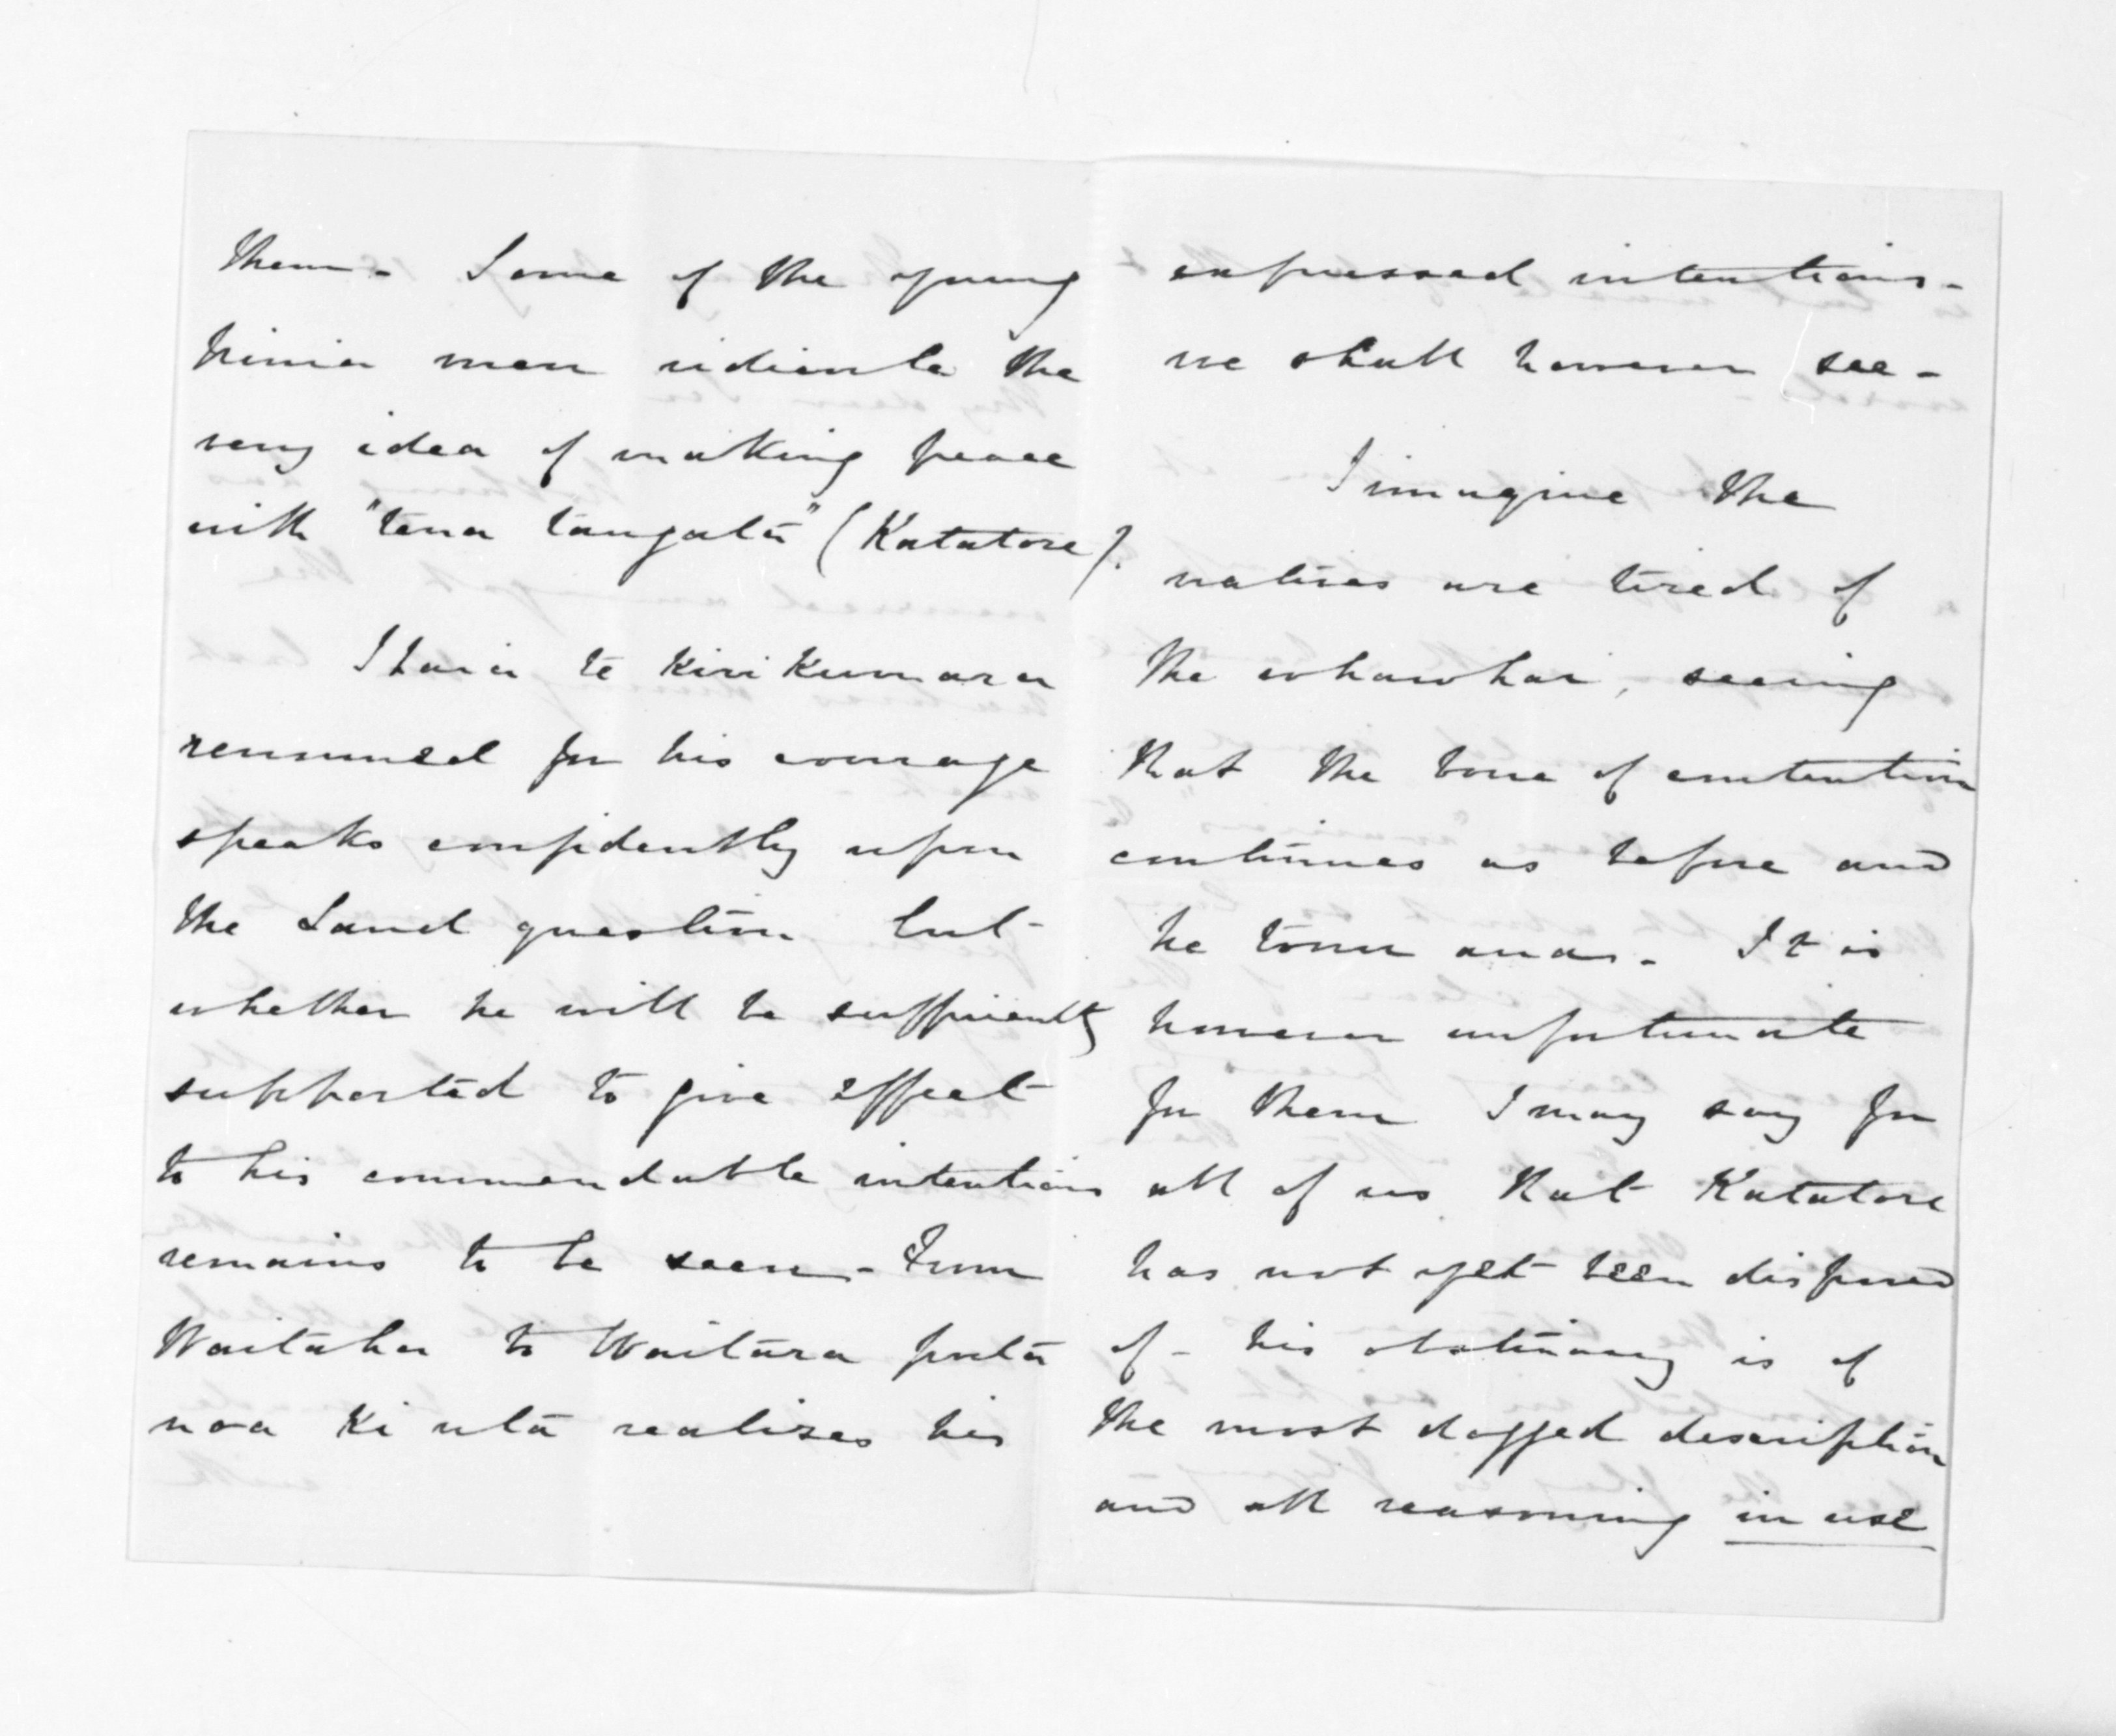 them - Some of the young
Ninia men ridicule the
very idea of making peace
with "tena tangata" (Katatore).
Ihaia te Kirikumara
renowned for his courage
speaks confidently upon
the Land question but
whether he will be sufficiently
supported to give effect
to his commendable intentions
remains to be seen - From
Waitaha to Waitara puta
noa ki uta realizes his
expressed intentions -
we shall however see -
I imagine the
natives are tired of
the whawhai, seeing
that the bone of contention
continues as before and
he tonu anar. It is
however unfortunate
for them I may say for
all of us that Katatore
has not yet been disposed
of - his obstinacy is of
the most dogged description
and all reasoning in use